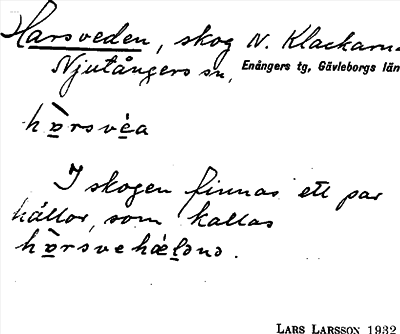 Harsveden, skog N. Klackarna.
Njutångers sn, Enångers tg, Gävleborgs län
hàrsvéa
I skogen finnas ett par
hällor, som kallas
LARS LARSSON 1932